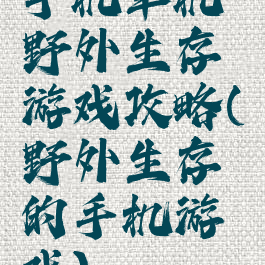 手机单机
野外生存
游戏攻略(
野外生存
的手机游
戏)